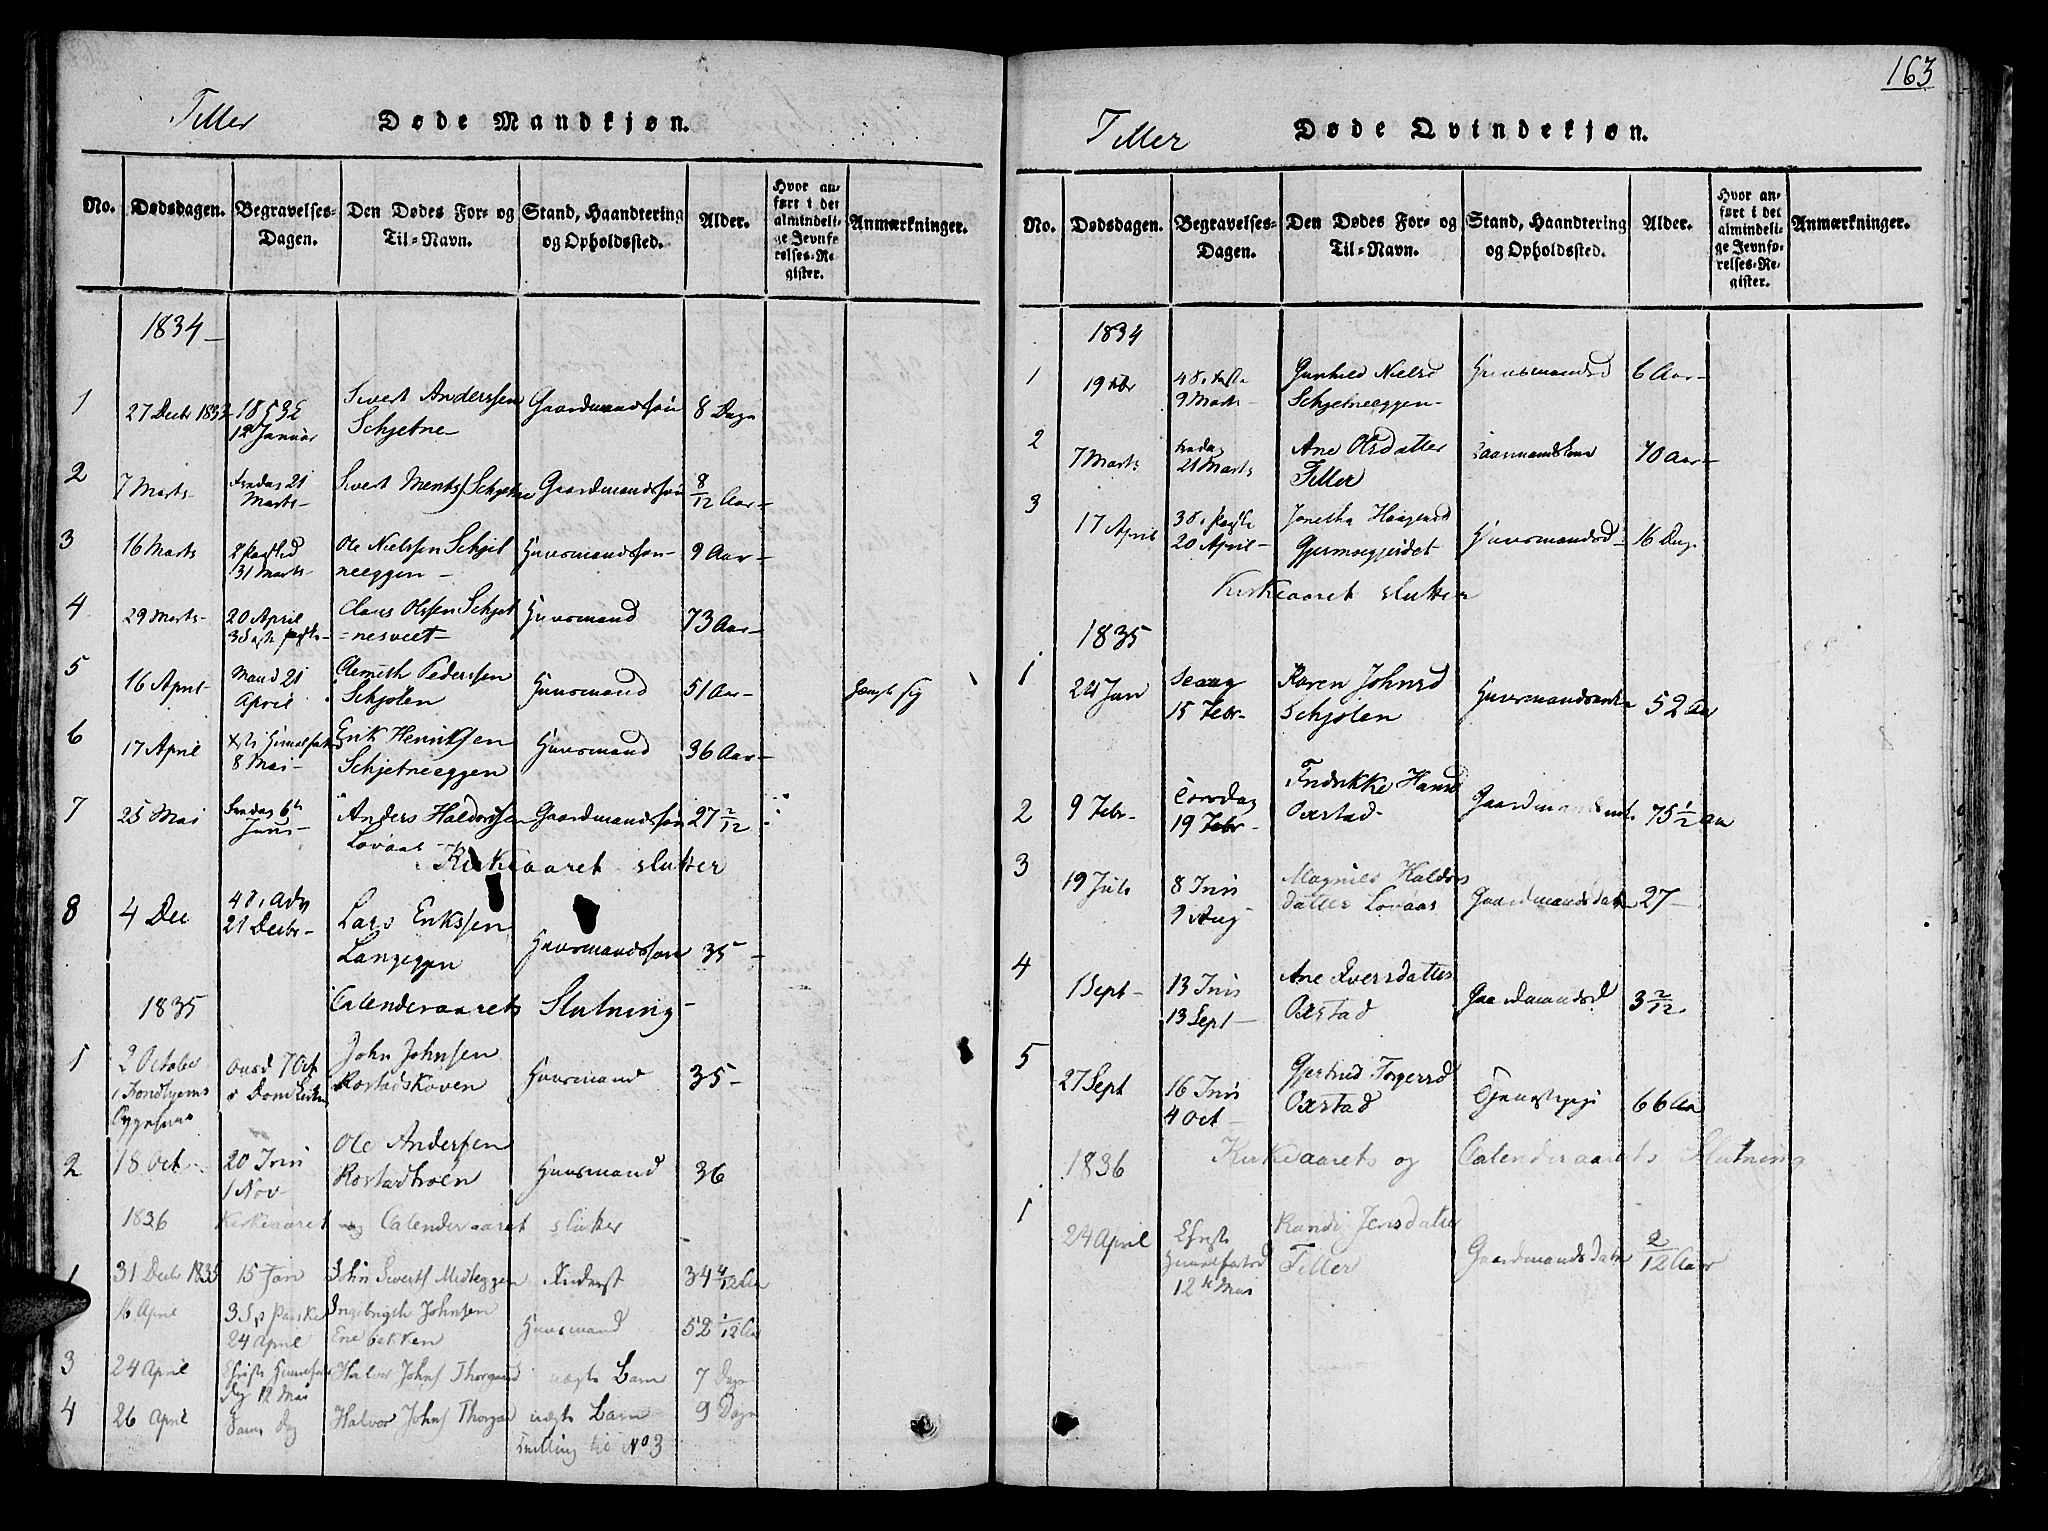 Tiller
Døde Mandkjøn.
No.
Dødsdagen.
Begravelses-
Dagen.
Den Dødes For- og
Til-Navn.
Stand, Haandtering
og Opholdssted.
Alder.
Hvor an-
ført i det
almindeli-
ge Jevnfø-
relses-Re-
gister.
Anmærkninger.
1834
1
27 Decbr 1833
12 Januar
Siver Anderssen
Schjetne
Gaardmandssøn
8 Dage
2
7 Marts
Fredag 21
Marts
Sivert Schjetne
Gaardmandssøn
8/12 Aar
3
16 Marts
31 Marts
Ole Nielssen Schjet
neeggen
Huusmandssøn
9 Aar
4
29 Marts
20 April
Claus Olssen Schjet
nesveet
Huusmand
73 Aar
5
16 April
Mand 21
April
Pederssen
Schjølen
Huusmand
51 Aar
hængte sig
6
17 April
8 Mai
Erik Henrikssen
Schjetneeggen
Huusmand
36 Aar
7
25 Mai
Anders Haldorssen
Løvaas
Gaardmandssøn
27 2/12
Kirkeaaret slutter
8
4 Dec
4 S. Adv
21 Decbr
Lars Erikssen
Langeggen
Huusmandssøn
35
1835
Calenderaarets Slutning
1
2 October
i Trondhjems
Onsd 7 Oct
John Johnsen
Rostadskoven
Huusmand
35
2
18 Oct
20 Trin
1 Nov
Ole Anderssen
Rostadtrøen
Huusmand
36
1836
Kirkeaaret og Calenderaaret slutter
1
31 Decbr 1835
15 Jan
John Siverts Midteggen
Inderst
34 4/12 Aar
16 April
3 S. p Paaske
24 April
Ingebrigt Johnsen
Enebakken
Huusmand
52 1/12 Aar
3
24 April
Christi Himmelfarts
dag 12 Mai
Halvor Johns Thorgaard
uægte Barn
7 Dage
4
26 April
Samme Dag
Halvor Johns Thorgaard
uægte Barn
Tvilling til No 3
9 Dage
163
Tiller
Døde Qvindekjøn.
No.
Dødsdagen.
Begravelses-
Dagen.
Den Dødes For- og
Til-Navn.
Stand, Haandtering
og Opholdssted.
Alder.
Hvor an-
ført i det
almindeli-
ge Jevnfø-
relses-Re-
gister.
Anmærkninger.
1834
1
19 Febr
4 S. i Faste
9 Marts
Gunhild Nielsd
Schjetneeggen
Huusmandsd
6 Aar
2
7 Marts
Fredag
21 Marts
Ane Olsdatter
Tiller
70 Aar
3
17 April
20 April
Jonetha Haagensd
Huusmandsd
16 Dage
Kirkeaaret slutter
1835
1
24 Jan
15 Febr
Karen Johnsd
Schjølen
Huusmandsenke
52 Aar
2
9 Febr
Torsdag
19 Febr
Fredrikke Hansd
Oxstad
75 1/2 Aar
3
19 Juli
8 Trin
9 Aug
Magnild Haldors
datter Løvaas
Gaardmandsdatter
27
4
1 Sept
13 Trin
13 Sept
Ane Iversdatter
Oxstad
Gaardmandsd
3 2/12
5
27 Sept
16 Trin
4 Oct
Gjertrud Torgersd
Oxstad
Tjenestepige
66 Aar
1836
Kirkeaarets og Calenderaarets Slutning
1
24 April
Christi
Himmelfartsd
12te Mai
Randi Jensdatter
Tiller
Gaardmandsdatter
2/12 Aar